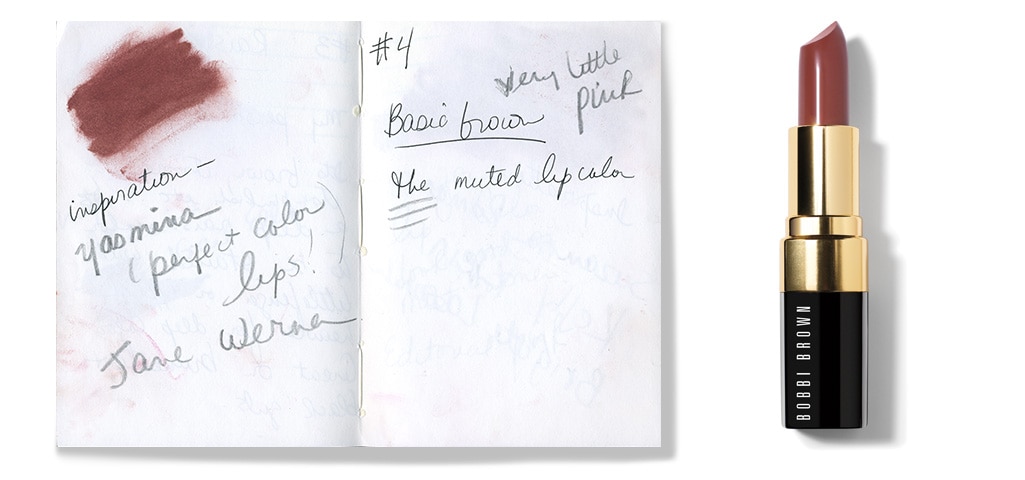 inspiration –
Yasmina
(perfect color
lips!)
Jane Werner
#4
very little
pink
Basic brown
the muted lipcolor
BOBBI BROWN